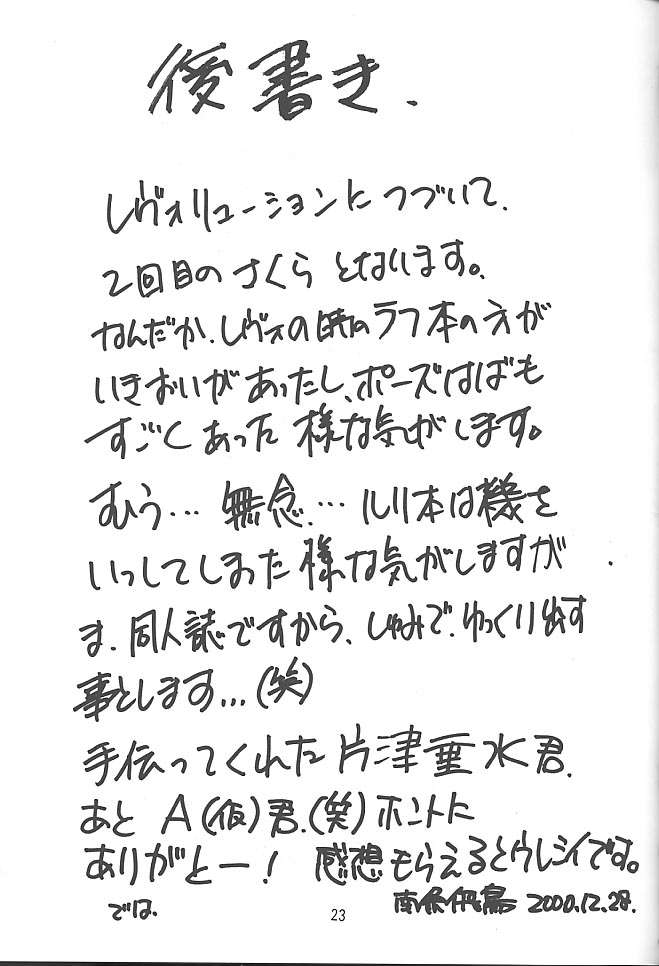 後書き.
レヴォリューションにつづいて.
2回目のさくらとないます。
なんだか、レヴォの時のラフ本の方が
いきおいがあったし、ポーズはばも
すごくあった様な気がします。
むう… 無念.… ルリ本は機を
いっしてしまった様な気がしますが
ま、同人誌ですから、しゅみで、ゆっくり出す
事とします…(笑)
手伝ってくれた片津垂水君.
あと A(仮)君.(笑)ホントに
ありがとー! 感想もらえるとウレシイです。
では. 23 南条飛鳥 2000.12.28.